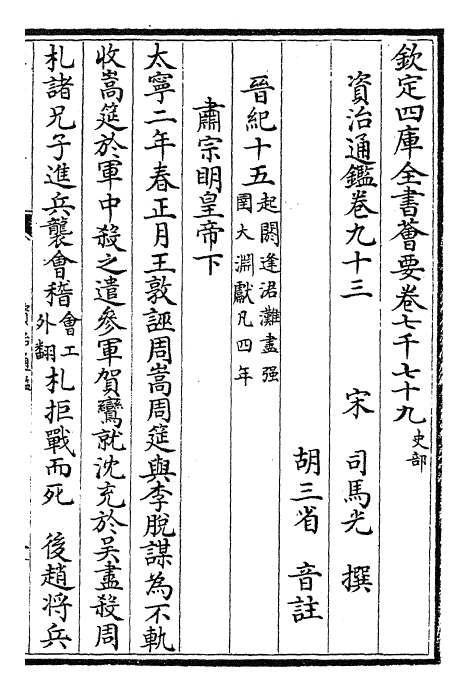 欽定四庫全書薈要卷七千七十九 史部
資治通鑑卷九十三 宋 司馬光 撰
胡三省 音註
晉紀十五 起閼逢涒灘盡强
圉大淵獻凡四年
肅宗明皇帝下
太寧二年春正月王敦誣周嵩周筵與李脫謀為不軌
收嵩筵於軍中殺之遣參軍賀鸞就沈充於吳盡殺周
札諸兄子進兵襲會稽 會工
外翻 札拒戰而死 後趙將兵